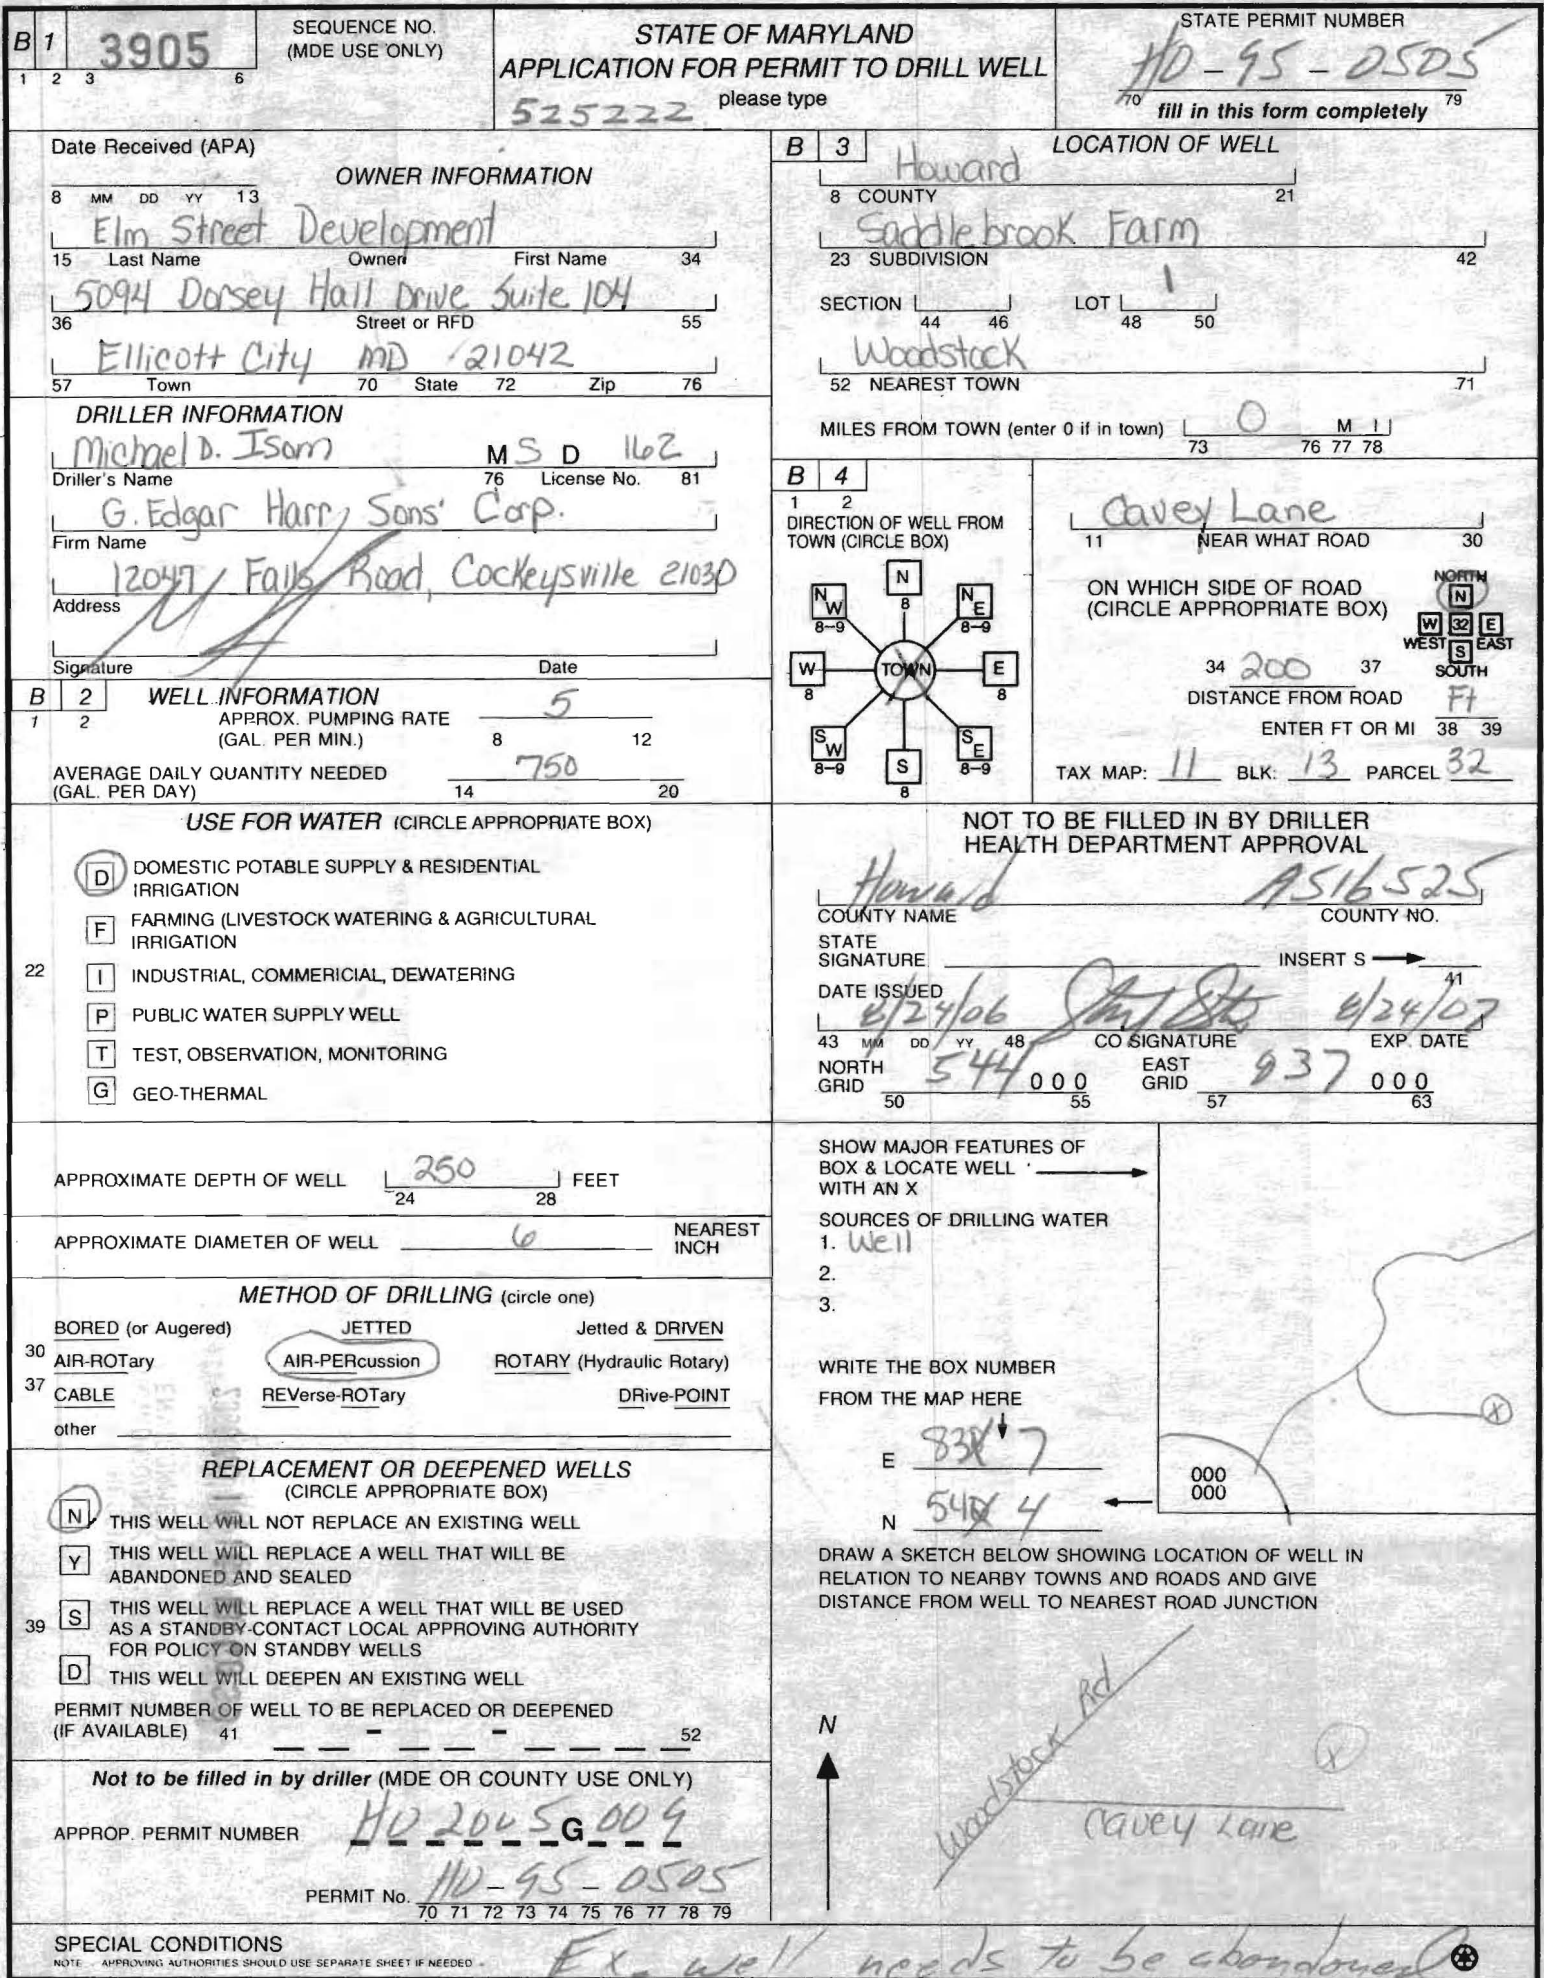 B 1 3905
1 2 3 6
SEQUENCE NO.
(MDE USE ONLY)
STATE OF MARYLAND
APPLICATION FOR PERMIT TO DRILL WELL
please type
525222
STATE PERMIT NUMBER
HO-95-0505
70 fill in this form completely 79
Date Received (APA)
8 MM DD YY 13
OWNER INFORMATION
Elm Street Development
15 Last Name Owner First Name 34
5094 Dorsey Hall Drive Suite 104
36 Street or RFD 55
Ellicott City MD 21042
57 Town 70 State 72 Zip 76
DRILLER INFORMATION
Michael D. Isom M S D 162
Driller's Name 76 License No. 81
G. Edgar Harr Sons' Corp.
Firm Name
12047 Falls Road, Cockeysville 21030
Address
Signature Date
B 2 WELL INFORMATION
1 2
APPROX. PUMPING RATE 5
(GAL. PER MIN.) 8 12
AVERAGE DAILY QUANTITY NEEDED 750
(GAL. PER DAY) 14 20
USE FOR WATER (CIRCLE APPROPRIATE BOX)
D DOMESTIC POTABLE SUPPLY & RESIDENTIAL
IRRIGATION
F FARMING (LIVESTOCK WATERING & AGRICULTURAL
IRRIGATION
22 I INDUSTRIAL, COMMERICIAL, DEWATERING
P PUBLIC WATER SUPPLY WELL
T TEST, OBSERVATION, MONITORING
G GEO-THERMAL
APPROXIMATE DEPTH OF WELL 250 FEET
24 28
APPROXIMATE DIAMETER OF WELL 6 NEAREST
INCH
METHOD OF DRILLING (circle one)
BORED (or Augered) JETTED Jetted & DRIVEN
30 AIR-ROTary AIR-PERcussion ROTARY (Hydraulic Rotary)
37 CABLE REVerse-ROTary DRive-POINT
other
REPLACEMENT OR DEEPENED WELLS
(CIRCLE APPROPRIATE BOX)
N THIS WELL WILL NOT REPLACE AN EXISTING WELL
Y THIS WELL WILL REPLACE A WELL THAT WILL BE
ABANDONED AND SEALED
39 S THIS WELL WILL REPLACE A WELL THAT WILL BE USED
AS A STANDBY-CONTACT LOCAL APPROVING AUTHORITY
FOR POLICY ON STANDBY WELLS
D THIS WELL WILL DEEPEN AN EXISTING WELL
PERMIT NUMBER OF WELL TO BE REPLACED OR DEEPENED
(IF AVAILABLE) 41 - - 52
Not to be filled in by driller (MDE OR COUNTY USE ONLY)
APPROP. PERMIT NUMBER HO 2005 G 009
PERMIT No. HO-95-0505
70 71 72 73 74 75 76 77 78 79
B 3 LOCATION OF WELL
Howard
8 COUNTY 21
Saddlebrook Farm
23 SUBDIVISION 42
SECTION LOT 1
44 46 48 50
Woodstock
52 NEAREST TOWN 71
MILES FROM TOWN (enter 0 if in town) 0 M I
73 76 77 78
B 4
1 2
DIRECTION OF WELL FROM
TOWN (CIRCLE BOX)
N
8
NW
8-9
NE
8-9
W
8
TOWN
E
8
SW
8-9
SE
8-9
S
8
Cavey Lane
11 NEAR WHAT ROAD 30
ON WHICH SIDE OF ROAD
(CIRCLE APPROPRIATE BOX)
NORTH
N
W 32 E
WEST S EAST
SOUTH
34 200 37
DISTANCE FROM ROAD
Ft
ENTER FT OR MI 38 39
TAX MAP: 11 BLK: 13 PARCEL 32
NOT TO BE FILLED IN BY DRILLER
HEALTH DEPARTMENT APPROVAL
Howard A516525
COUNTY NAME COUNTY NO.
STATE
SIGNATURE INSERT S
41
DATE ISSUED
8/24/06 8/24/07
43 MM DD YY 48 CO SIGNATURE EXP. DATE
NORTH
GRID 544 000
50 55
EAST
GRID 837 000
57 63
SHOW MAJOR FEATURES OF
BOX & LOCATE WELL
WITH AN X
SOURCES OF DRILLING WATER
1. Well
2.
3.
WRITE THE BOX NUMBER
FROM THE MAP HERE
E 83 7
N 54 4
X
000
000
DRAW A SKETCH BELOW SHOWING LOCATION OF WELL IN
RELATION TO NEARBY TOWNS AND ROADS AND GIVE
DISTANCE FROM WELL TO NEAREST ROAD JUNCTION
N
Woodstock Rd
X
Cavey Lane
SPECIAL CONDITIONS
NOTE APPROVING AUTHORITIES SHOULD USE SEPARATE SHEET IF NEEDED
Ex. well needs to be abandoned